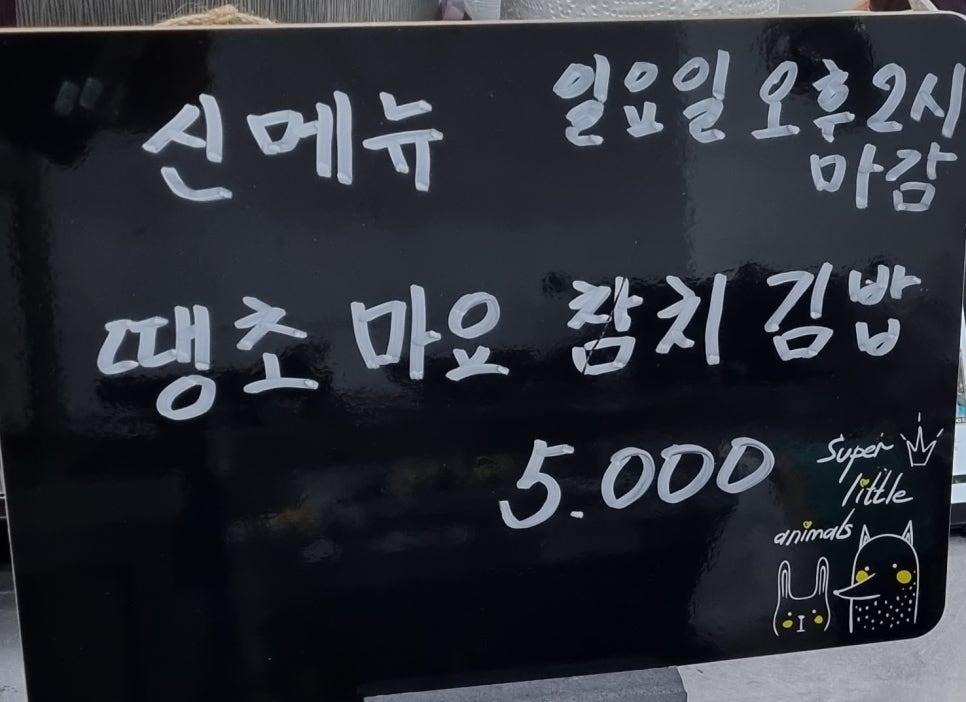 신메뉴
일요일 오후 2시
마감
땡초 마요 참치 김밥
5.000
super
little
animals